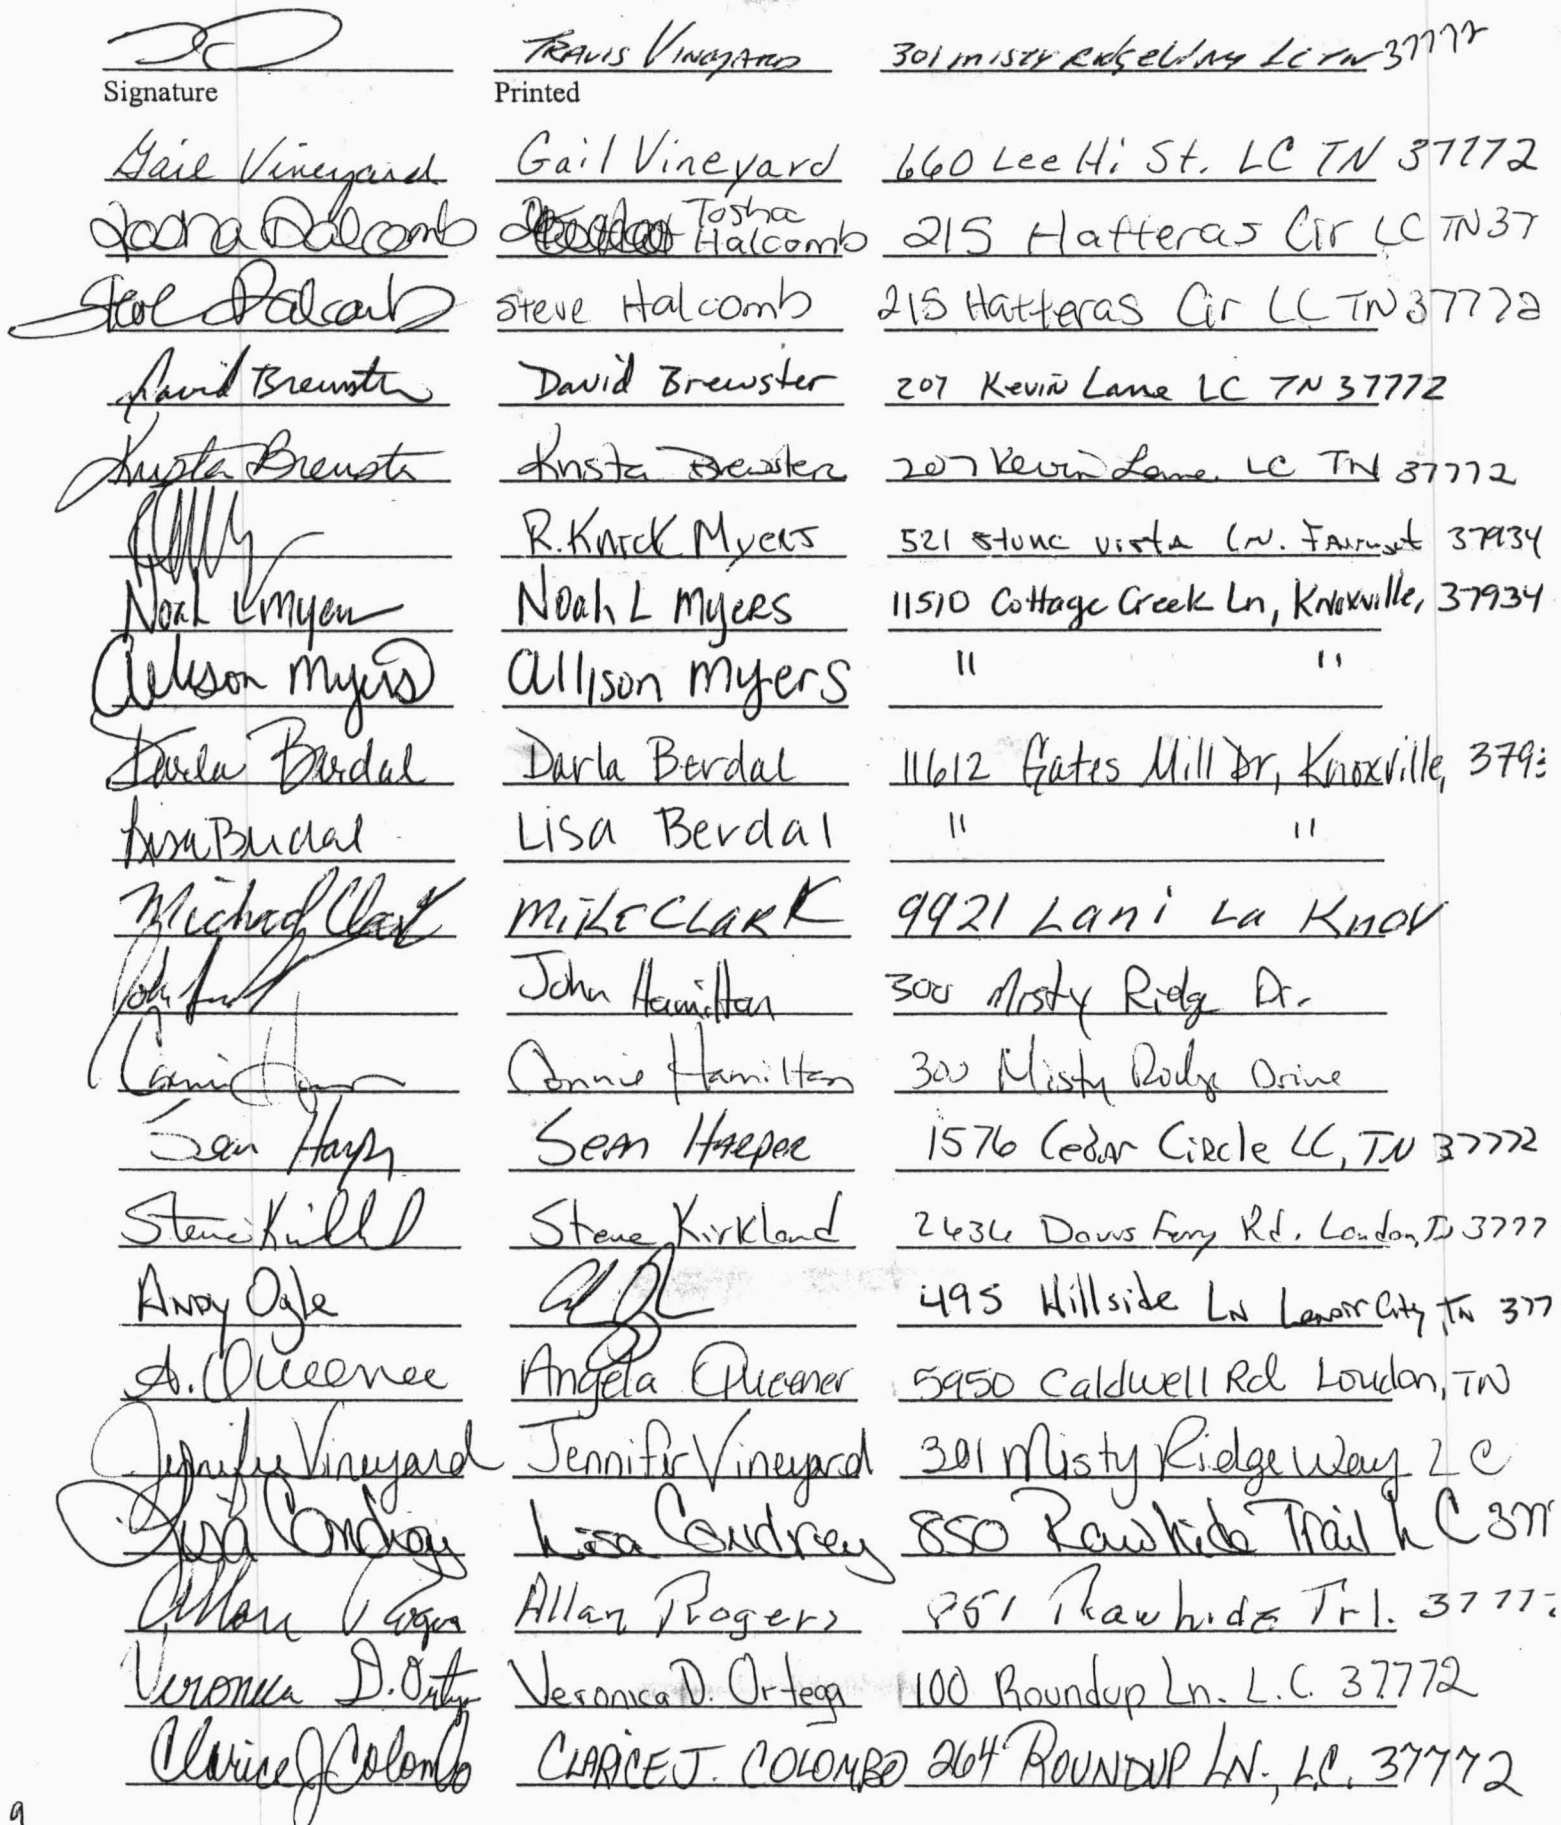 Travis Vineyard 301 Misty Ridge Way LC TN 37772
Signature Printed
Gail Vineyard Gail Vineyard 660 Lee Hi St. LC TN 37772
Tosha Halcomb Tosha Halcomb 215 Hatteras Cir LC TN 37
Steve Halcomb Steve Halcomb 215 Hatteras Cir LC TN 37772
David Brewster David Brewster 207 Kevin Lane LC TN 37772
Krista Brewster Krista Brewster 207 Kevin Lane LC TN 37772
R. Knick Myers 521 Stone Vista Ln. Farragut 37934
Noah L Myers Noah L Myers 11510 Cottage Creek Ln, Knoxville, 37934
Allison Myers Allison Myers " "
Darla Berdal Darla Berdal 11612 Gates Mill Dr, Knoxville, 379
Lisa Berdal Lisa Berdal " "
Michael Clark Mike Clark 9921 Lani La Knox
John Hamilton 300 Misty Ridge Dr.
Connie Hamilton 300 Misty Ridge Drive
Sean Harper Sean Harper 1576 Cedar Circle LC, TN 37772
Steve Kirkland Steve Kirkland 2636 Davis Ferry Rd. Loudon, TN 3777
Andy Ogle 495 Hillside Ln Lenoir City, TN 377
A. Queener Angela Queener 5950 Caldwell Rd Loudon, TN
Jennifer Vineyard Jennifer Vineyard 301 Misty Ridge Way LC
Lisa Condrey Lisa Condrey 850 Rawhide Trail LC 377
Allan Rogers Allan Rogers 851 Rawhide Trl. 3777
Veronica D. Ortega Veronica D. Ortega 100 Roundup Ln. L.C. 37772
Clarice J Colombo CLARICE J. COLOMBO 264 ROUNDUP LN., L.C. 37772
9